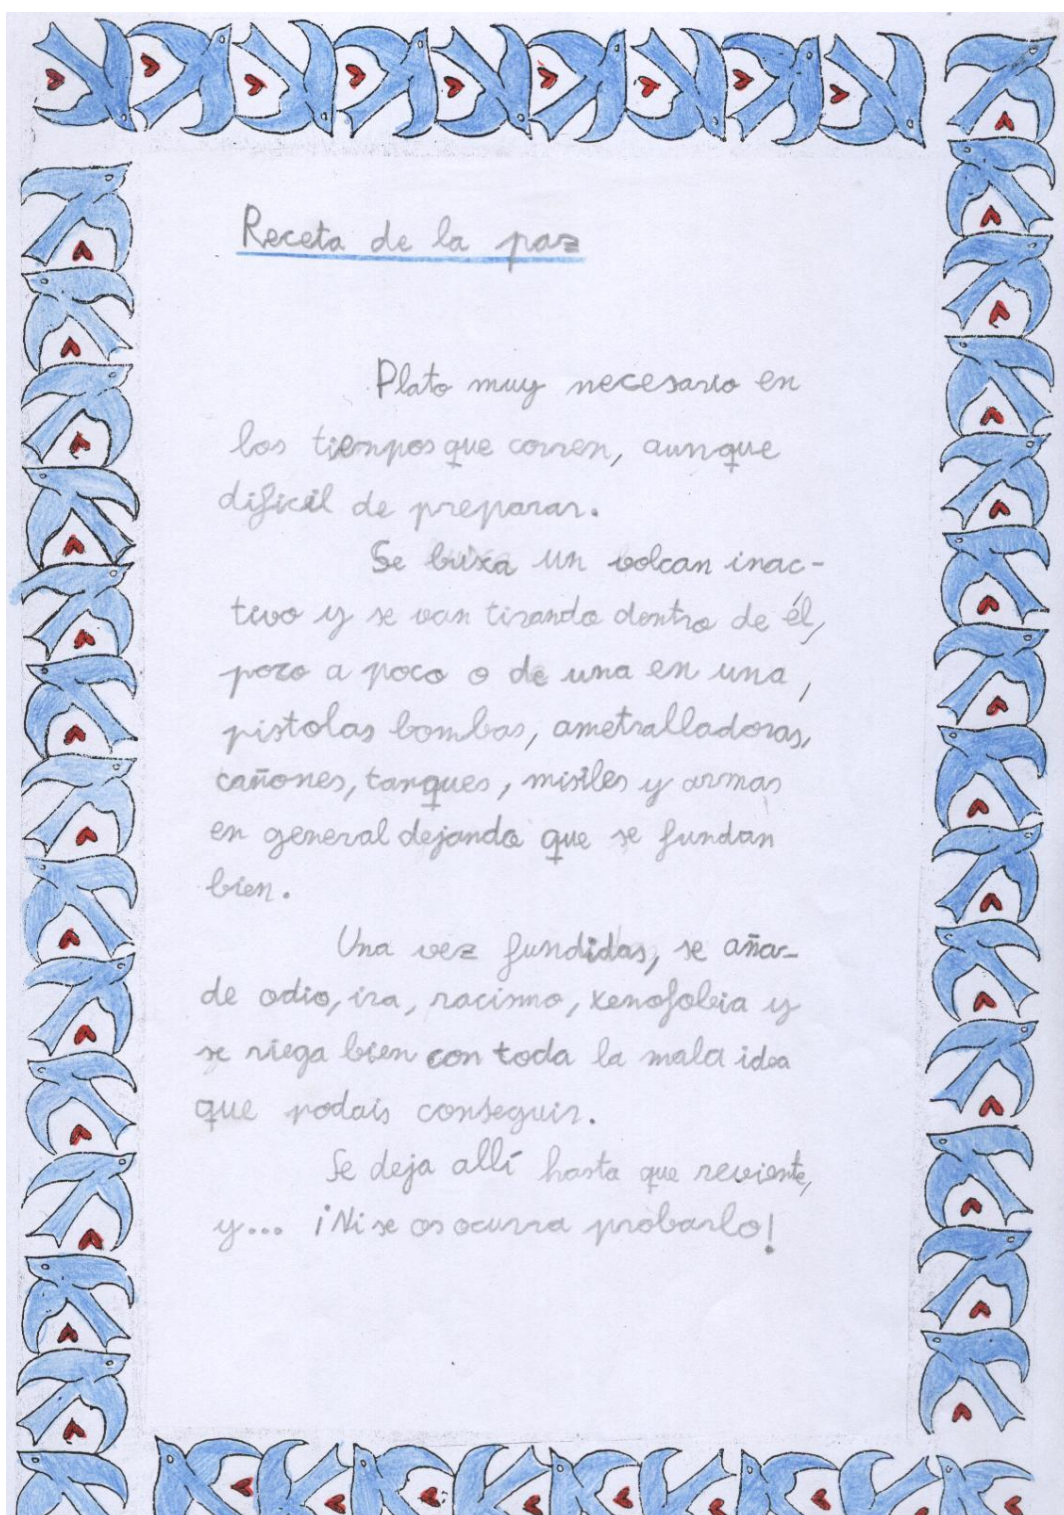 Receta de la paz
Plato muy necesario en
los tiempos que corren, aunque
dificil de preparar.
Se busca un volcan inac-
tivo y se van tirando dentro de él,
poco a poco o de una en una,
pistolas bombas, ametralladoras,
cañones, tanques, misiles y armas
en general dejando que se fundan
bien.
Una vez fundidas, se aña-
de odio, ira, racismo, xenofobia y
se riega bien con toda la mala idea
que podais conseguir.
Se deja allí hasta que reviente,
y... ¡Ni se os ocurra probarlo!